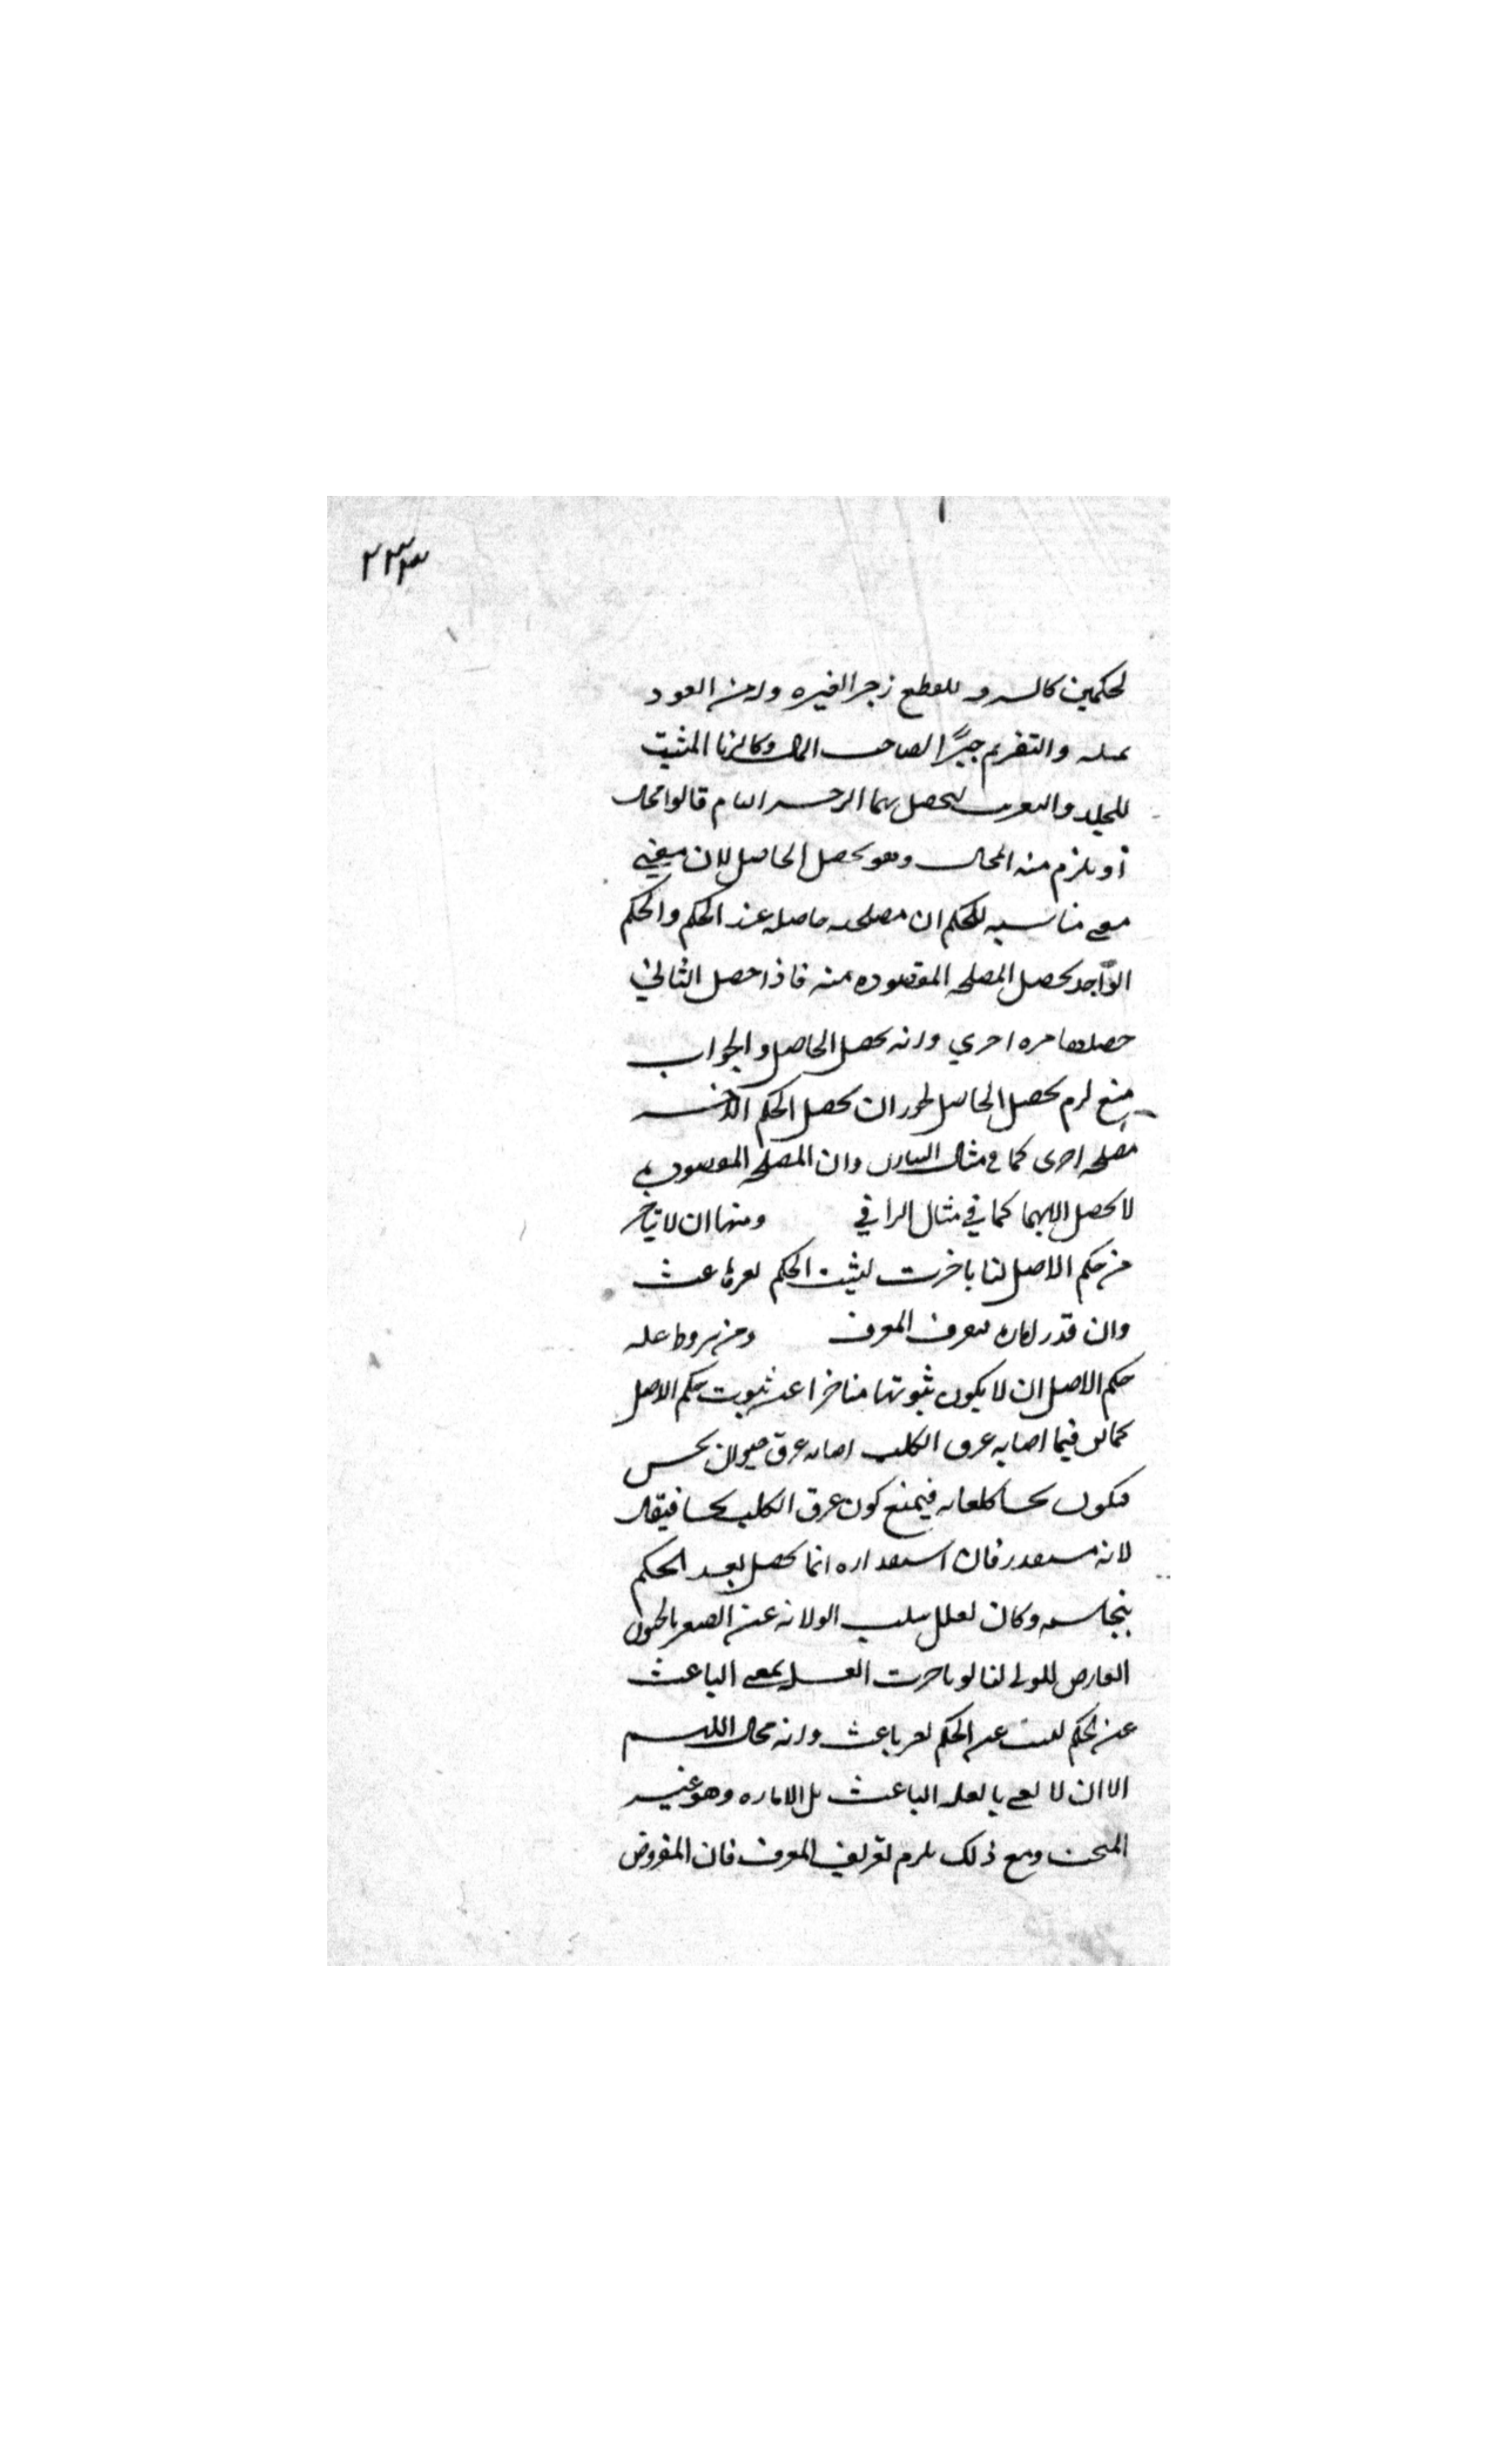 ٢٣٣
لحكمين كالسرقة للقطع زجرا لغيره وله من العود
لمثله والتغريم جبرًا لصاحب المال وكالزنا المثبت
للجلد والتغريب ليحصل بهما الزجر التام قالوا محال
اذ يلزم منه المحال وهو تحصيل الحاصل لان معنى
مناسبه للحكم ان مصلحته حاصله عند الحكم والحكم
الواحد يحصل المصلحه المقصوده منه فاذا حصل الثاني
حصلها مره اخرى وانه تحصيل الحاصل والجواب
منع لزوم تحصيل الحاصل لجواز ان يحصل الحكم الاخر
مصلحه اخرى كما في مثال السارق وان المصلحه المقصوده
لا تحصل الا بهما كما في مثال الزاني ومنها ان لا يتاخر
عن حكم الاصل لنا لو تاخرت لثبت الحكم بغير باعث
وان قدر اماره فتعريف المعرف ومن شروط علة
حكم الاصل ان لا يكون ثبوتها متاخرا عن ثبوت حكم الاصل
كما يقال فيما اصابه عرق الكلب اصابه عرق حيوان نجس
فيكون نجسا كلعابه فيمنع كون عرق الكلب نجسا فيقال
لانه مستقذر فان استقذاره انما يحصل بعد الحكم
بنجاسته وكان تعلل سلب الولاية عن الصغير بالجنون
العارض للولي لنا لو تاخرت العلة بمعنى الباعث
عن الحكم لثبت الحكم بغير باعث وانه محال اللهم
الا ان لا يعنى بالعلة الباعث بل الاماره وهو غير
المبحث ومع ذلك يلزم تعريف المعرف فان المفروض